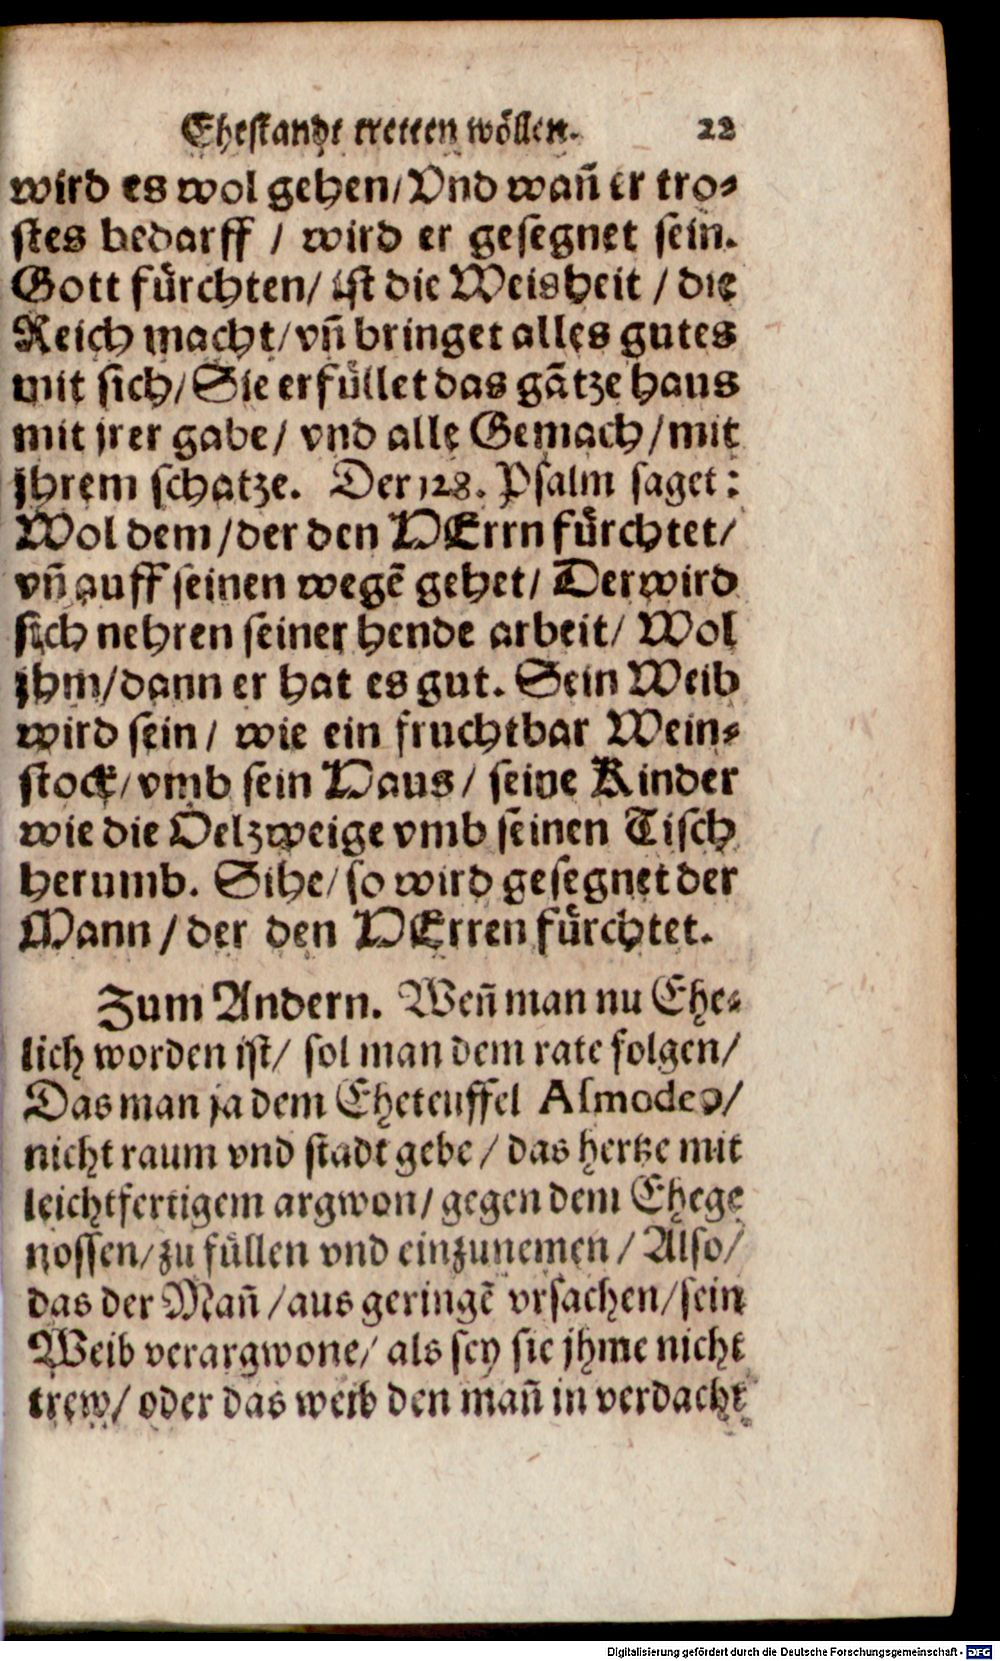 Ehestandt tretten wöllen. 22
wird es wol gehen/Vnd wañ er tro-
stes bedarff / wird er gesegnet sein.
Gott fürchten/ ist die Weisheit / die
Reich macht/vñ bringet alles gutes
mit sich/ Sie erfüllet das gãtze haus
mit jrer gabe/ vnd alle Gemach/mit
jhrem schatze. Der 128. Psalm saget:
Wol dem/der den HErrn fürchtet/
vñ auff seinen wegẽ gehet/ Der wird
sich nehren seiner hende arbeit/ Wol
jhm/dann er hat es gut. Sein Weib
wird sein/ wie ein fruchtbar Wein-
stock/vmb sein Haus/ seine Kinder
wie die Oelzweige vmb seinen Tisch
herumb. Sihe/so wird gesegnet der
Mann/der den HErren fürchtet.
Zum Andern. Weñ man nu Ehe-
lich worden ist/ sol man dem rate folgen/
Das man ja dem Eheteuffel Asmodeo/
nicht raum vnd stadt gebe/ das hertze mit
leichtfertigem argwon/gegen dem Ehege
nossen/zu füllen vnd einzunemen/ Also/
das der Mañ/aus geringẽ vrsachen/sein
Weib verargwone/ als sey sie jhme nicht
trew/ oder das weib den mañ in verdacht
Digitalisierung gefördert durch die Deutsche Forschungsgemeinschaft - DFG